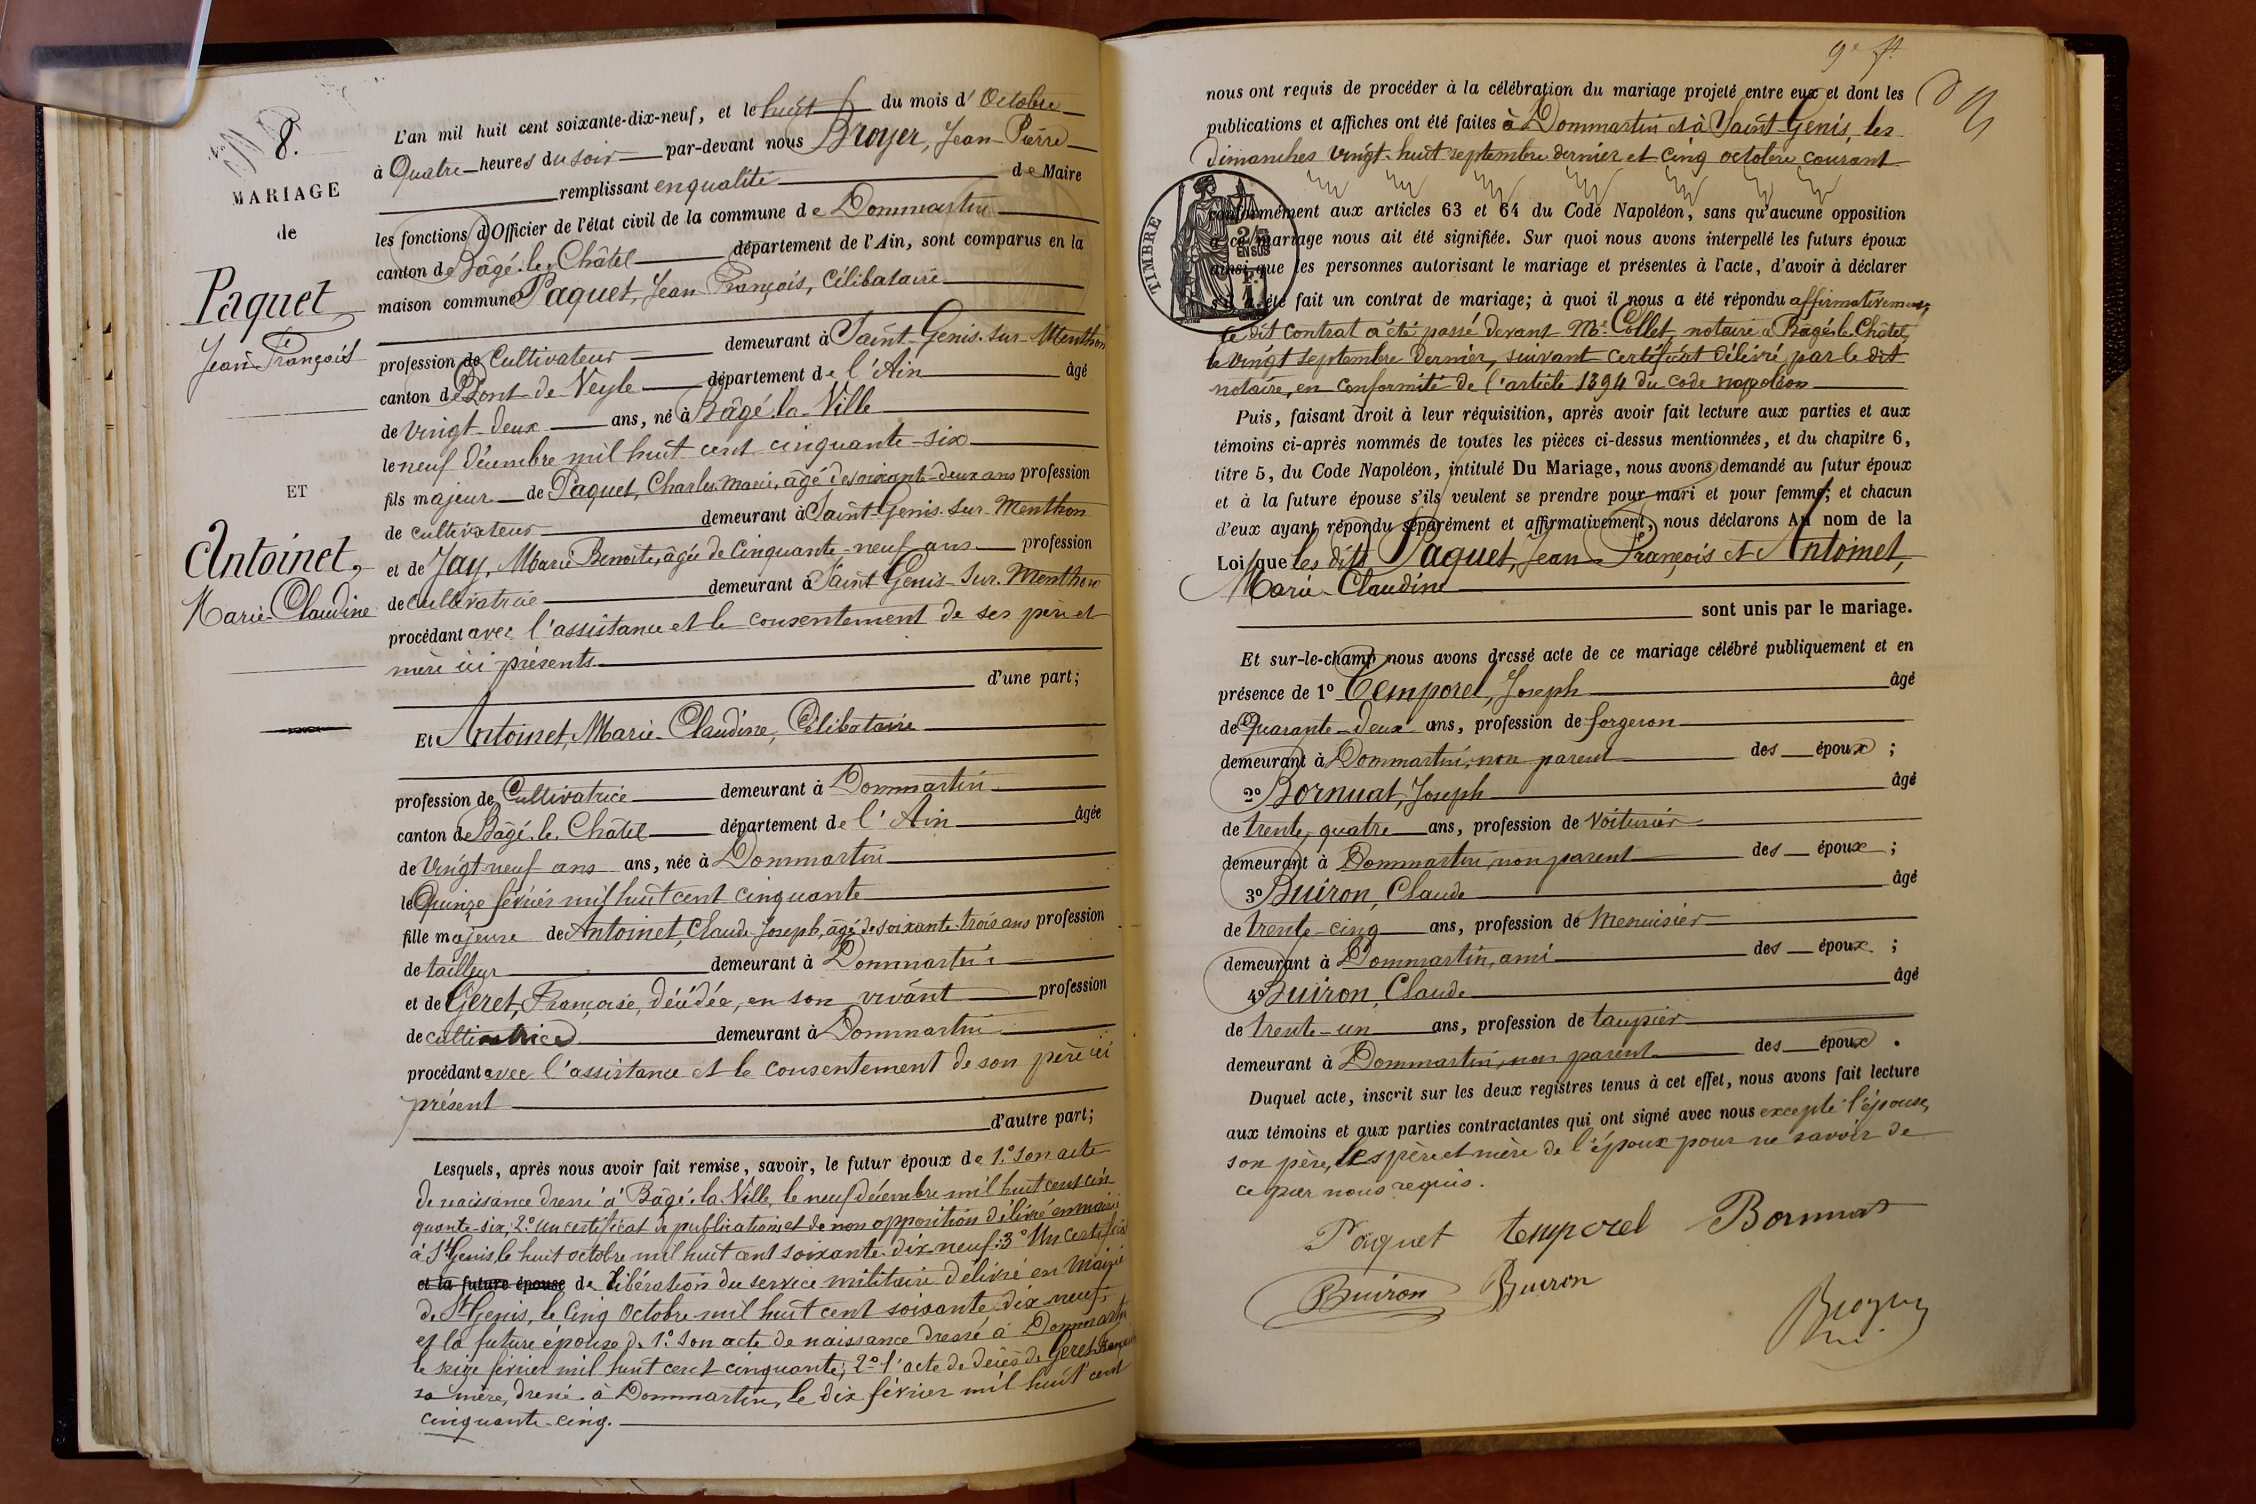 8.
MARIAGE
de
Paquet
Jean-François
ET
Antoinet,
Marie-Claudine
L'an mil huit cent soixante-dix-neuf, et le huit du mois d' Octobre
à Quatre heures du soir par-devant nous Broyer, Jean-Pierre
remplissant en qualité de Maire
les fonctions d'Officier de l'état civil de la commune de Dommartin
canton de Bâgé-le-Châtel département de l'Ain, sont comparus en la
maison commune Paquet, Jean François, Célibataire
profession de Cultivateur demeurant à Saint-Genis-sur-Menthon
canton de Pont-de-Veyle département de l'Ain âgé
de vingt-deux ans, né à Bâgé-la-Ville
le neuf décembre mil huit cent cinquante-six
fils majeur de Paquet, Charles Marie, âgé de soixante-deux ans profession
de cultivateur demeurant à Saint-Genis-sur-Menthon
et de Jay, Marie Benoite, âgée de Cinquante-neuf ans profession
de cultivatrice demeurant à Saint Genis-sur-Menthon
procédant avec l'assistance et le consentement de ses père et
mère ici présents
d'une part;
Et Antoinet, Marie-Claudine, Célibataire
profession de Cultivatrice demeurant à Dommartin
canton de Bâgé-le-Châtel département de l'Ain âgée
de vingt-neuf ans ans, née à Dommartin
le Quinze février mil huit cent cinquante
fille majeure de Antoinet, Claude-Joseph, âgé de soixante-trois ans profession
de tailleur demeurant à Dommartin
et de Geret, Françoise, décédée, en son vivant profession
de cultivatrice demeurant à Dommartin
procédant avec l'assistance et le consentement de son père ici
présent
d'autre part;
Lesquels, après nous avoir fait remise, savoir, le futur époux de 1.° son acte
de naissance dressé à Bâgé-la-Ville, le neuf décembre mil huit cent cin
quante-six; 2.° Un certificat de publication et de non opposition délivré en mairie
à St Genis, le huit octobre mil huit cent soixante-dix-neuf; 3.° Un certificat
et la future épouse de libération du service militaire délivré en Mairie
de St Genis, le Cinq Octobre mil huit cent soixante dix neuf;
et la future épouse de 1.° son acte de naissance dressé à Dommartin
le seize février mil huit cent cinquante; 2.° l'acte de décès de Geret Françoise
sa mère, dressé à Dommartin, le dix février mil huit cent
cinquante-cinq.
9e ft
nous ont requis de procéder à la célébration du mariage projeté entre eux et dont les
publications et affiches ont été faites à Dommartin et à Saint-Genis, les
dimanches vingt-huit septembre dernier et cinq octobre courant
TIMBRE
2/5
EN SUS
conformément aux articles 63 et 64 du Code Napoléon, sans qu'aucune opposition
à ce mariage nous ait été signifiée. Sur quoi nous avons interpellé les futurs époux
ainsi que les personnes autorisant le mariage et présentes à l'acte, d'avoir à déclarer
s'il a été fait un contrat de mariage; à quoi il nous a été répondu affirmativement,
le dit contrat a été passé devant Me Collet, notaire à Bâgé-le-Châtel,
le vingt septembre dernier, suivant certificat délivré par le dit
notaire, en conformité de l'article 1394 du code napoléon
Puis, faisant droit à leur réquisition, après avoir fait lecture aux parties et aux
témoins ci-après nommés de toutes les pièces ci-dessus mentionnées, et du chapitre 6,
titre 5, du Code Napoléon, intitulé Du Mariage, nous avons demandé au futur époux
et à la future épouse s'ils veulent se prendre pour mari et pour femme; et chacun
d'eux ayant répondu séparément et affirmativement, nous déclarons Au nom de la
Loi que les dits Paquet, Jean-François et Antoinet,
Marie-Claudine
sont unis par le mariage.
Et sur-le-champ nous avons dressé acte de ce mariage célébré publiquement et en
présence de 1° Temporel, Joseph âgé
de Quarante-deux ans, profession de forgeron
demeurant à Dommartin, non parent des époux ;
2° Bornuat, Joseph âgé
de trente-quatre ans, profession de voiturier
demeurant à Dommartin, non parent des époux ;
3° Buiron, Claude âgé
de trente-cinq ans, profession de Menuisier
demeurant à Dommartin, ami des époux ;
4° Buiron, Claude âgé
de trente-un ans, profession de taupier
demeurant à Dommartin, non parent des époux .
Duquel acte, inscrit sur les deux registres tenus à cet effet, nous avons fait lecture
aux témoins et aux parties contractantes qui ont signé avec nous excepté l'épouse,
son père, les père et mère de l'époux pour ne savoir de
ce par nous requis.
Paquet temporel Bornuat
Buiron Buiron
Broyer